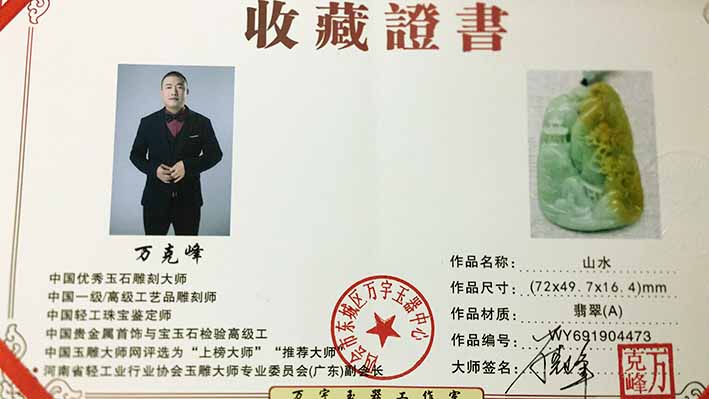 收藏證書
万克峰
中国优秀玉石雕刻大师
中国一级/高级工艺品雕刻师
中国轻工珠宝鉴定师
中国贵金属首饰与宝玉石检验高级工
中国玉雕大师网评选为“上榜大师”“推荐大师”
河南省轻工业行业协会玉雕大师专业委员会(广东)副会长
四会市东城区万宇玉器中心
作品名称: 山水
作品尺寸: (72x49.7x16.4)mm
作品材质: 翡翠(A)
作品编号: WY691904473
大师签名:
万克峰
万宇玉器工作室